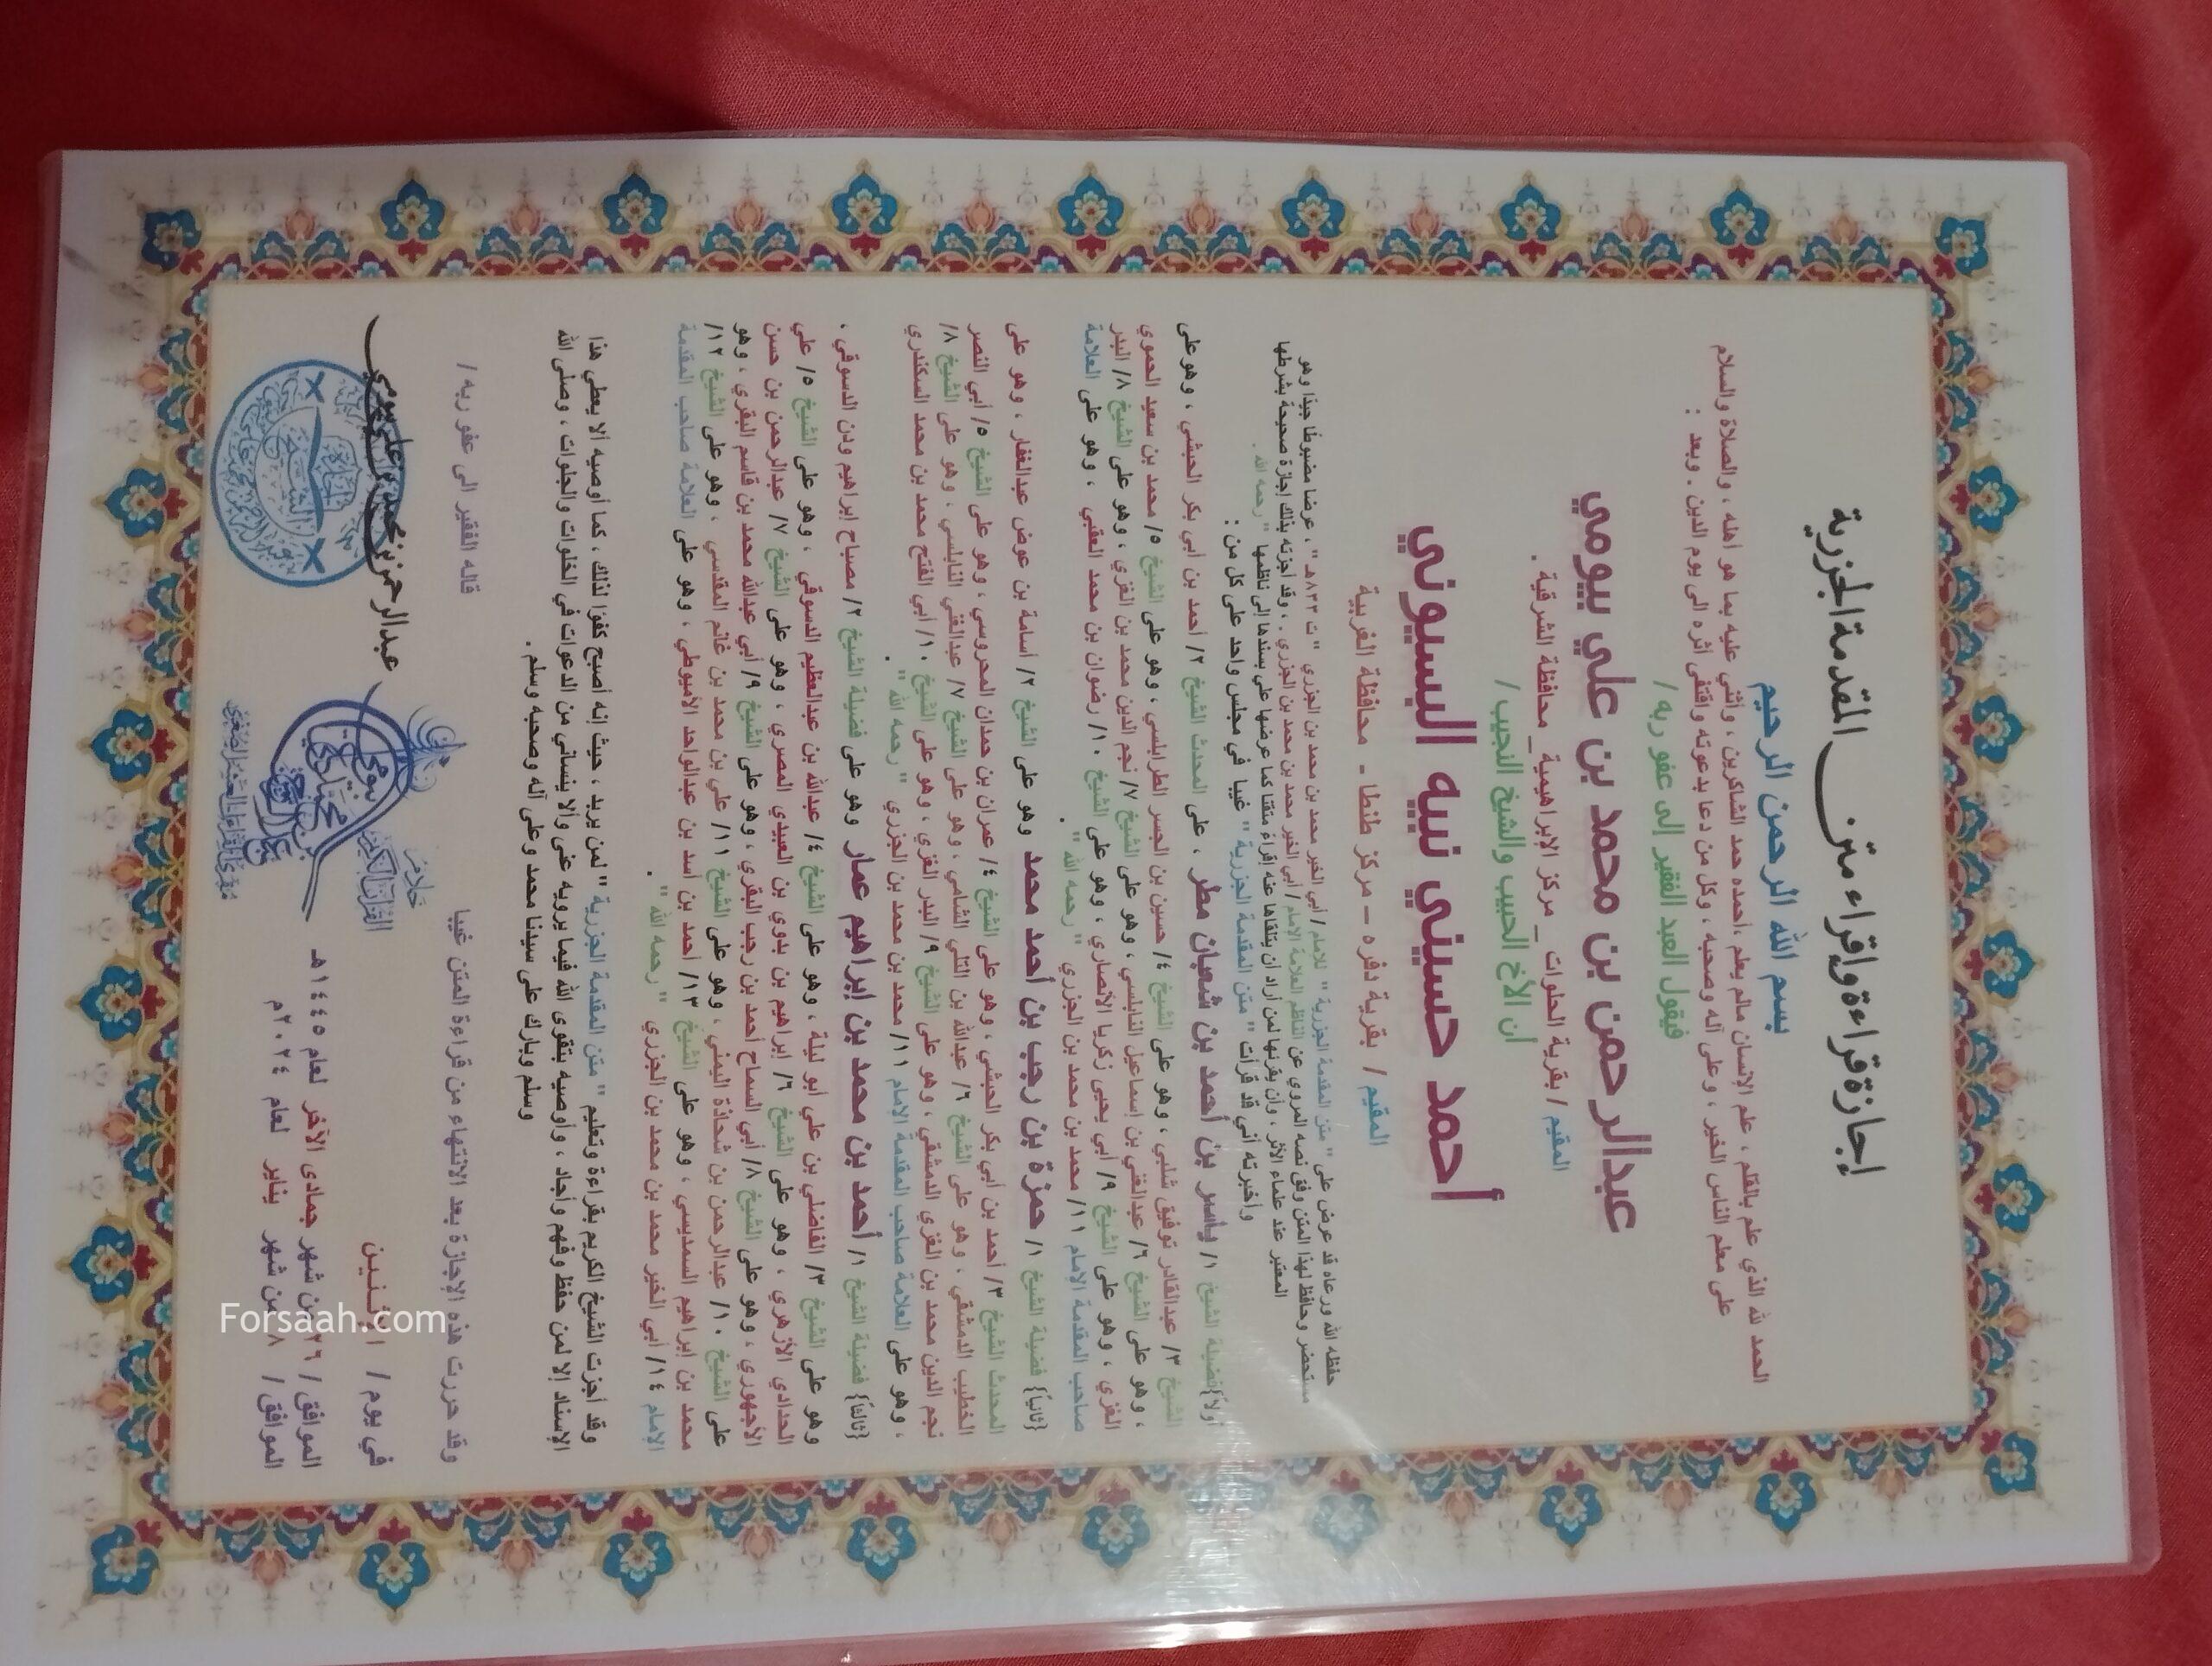 إجازة قراءة وإقراء متن المقدمة الجزرية
بسم الله الرحمن الرحيم
الحمد لله الذي علم بالقلم ، علم الإنسان مالم يعلم ،أحمده حمد الشاكرين ، وأثني عليه بما هو أهله ، والصلاة والسلام
على معلم الناس الخير ، وعلى آله وصحبه ، وكل من دعا بدعوته واقتفى أثره الى يوم الدين . وبعد :
فيقول العبد الفقير إلى عفو ربه /
عبدالرحمن بن محمد بن علي بيومي
المقيم / بقرية الحلوات _ مركز الإبراهيمية_ محافظة الشرقية .
أن الأخ الحبيب والشيخ النجيب /
أحمد حسيني نبيه البسيوني
المقيم / بقرية دفره – مركز طنطا - محافظة الغربية
حفظه الله ورعاه قد عرض على " متن المقدمة الجزرية " للامام / أبي الخير محمد بن محمد بن الجزري " ت ٨٣٣هـ" ، عرضا مضبوطا جيدا وهو
مستحضر وحافظ لهذا المتن وفق نصه المروي عن الناظم العلامة الامام / أبي الخير محمد بن محمد بن الجزري ، وقد أجزته بذلك إجازة صحيحة بشرطها
المعتبر عند علماء الأثر ، وأن يقرئها لمن أراد أن يتلقاها عنه إقراءً متقنا كما عرضها علي بسندها إلى ناظمها " رحمه الله .
وأخبرته أني قد قرأت " متن المقدمة الجزرية " غيبا في مجلس واحد على كل من :
أولاً}فضيلة الشيخ ١/ ياسر بن أحمد بن شعبان مطر ، على المحدث الشيخ ٢/ أحمد بن أبي بكر الحبشي ، وهوعلى
الشيخ ٣/ عبدالقادر توفيق شلبي ، وهو على الشيخ ٤/ حسين بن الجسر الطرابلسي ، وهو على الشيخ ٥/ محمد بن سعيد الحموي
، وهو على الشيخ ٦/ عبدالغني بن إسماعيل النابلسي ، وهو على الشيخ ٧/ نجم الدين محمد بن الغزي ، وهو على الشيخ ٨/ البدر
الغزي ، وهو على الشيخ ٩/ أبي يحيى زكريا الأنصاري ، وهو على الشيخ ١٠/ رضوان بن محمد العقبي ، وهو على العلامة
صاحب المقدمة الامام ١١/ محمد بن محمد بن الجزري " رحمه الله" .
{ثانياً} فضيلة الشيخ ١/ حمزة بن رجب بن أحمد محمد وهو على الشيخ ٢/ أسامة بن عوض عبدالغفار ، وهو على
المحدث الشيخ ٣/ أحمد بن أبي بكر الحبشي ، وهو على الشيخ ٤/ عمران بن حمدان المحروسي ، وهو على الشيخ ٥/ أبي النصر
الخطيب الدمشقي ، وهو على الشيخ ٦/ عبدالله بن التلي الشامي ، وهو على الشيخ ٧/ عبدالغني النابلسي ، وهو على الشيخ ٨/
نجم الدين محمد بن الغزي الدمشقي ، وهو على الشيخ ٩/ البدر الغزي ، وهو على الشيخ ١٠/ أبي الفتح محمد بن محمد السكندري
، وهو على العلامة صاحب المقدمة الإمام ١١/ محمد بن محمد بن الجزري " رحمه الله" .
{ثالثاً} فضيلة الشيخ ١/ أحمد بن محمد بن إبراهيم عمار وهو على فضيلة الشيخ ٢/ مصباح إبراهيم ودن الدسوقي ،
وهو على الشيخ ٣/ الفاضلي بن علي أبو ليلة ، وهو على الشيخ ٤/ عبدالله بن عبدالعظيم الدسوقي ، وهو على الشيخ ٥/ علي
الحدادي الأزهري ، وهو على الشيخ ٦/ إبراهيم بن بدوي بن العبيدي المصري ، وهو على الشيخ ٧/ عبدالرحمن بن حسن
الأجهوري ، وهو على الشيخ ٨/ أبي السماح أحمد بن رجب البقري ، وهو على الشيخ ٩/ أبي عبدالله محمد بن قاسم البقري ، وهو
على الشيخ ١٠/ عبدالرحمن بن شحاذة اليمني ، وهو على الشيخ ١١/ علي بن محمد بن غانم المقدسي ، وهو على الشيخ ١٢/
محمد بن إبراهيم السمديسي ، وهو على الشيخ ١٣/ أحمد بن أسد بن عبدالواحد الأميوطي ، وهو على العلامة صاحب المقدمة
الإمام ١٤/ أبي الخير محمد بن محمد بن الجزري " رحمه الله" .
وقد أجزت الشيخ الكريم بقراءة وتعليم " متن المقدمة الجزرية " لمن يريد ، حيث إنه أصبح كفؤا لذلك ، كما أوصيه ألا يعطي هذا
الإسناد إلا لمن حفظ وفهم وأجاد ، وأوصيه بتقوى الله فيما يرويه عني وألا ينساني من الدعوات في الخلوات والجلوات ، وصلى الله
وسلم وبارك على سيدنا محمد وعلى آله وصحبه وسلم .
وقد حررت هذه الإجازة بعد الانتهاء من قراءة المتن غيبا
قاله الفقير الى عفو ربه /
في يوم / الاثنين
عبدالرحمن بن محمد بن علي بيومي
الموافق / ٢٦ من شهر جمادى الآخر لعام ١٤٤٥هـ
الموافق / ٨ من شهر يناير لعام ٢٠٢٤م
خادم
القرآن الكريم
Forsaah.com